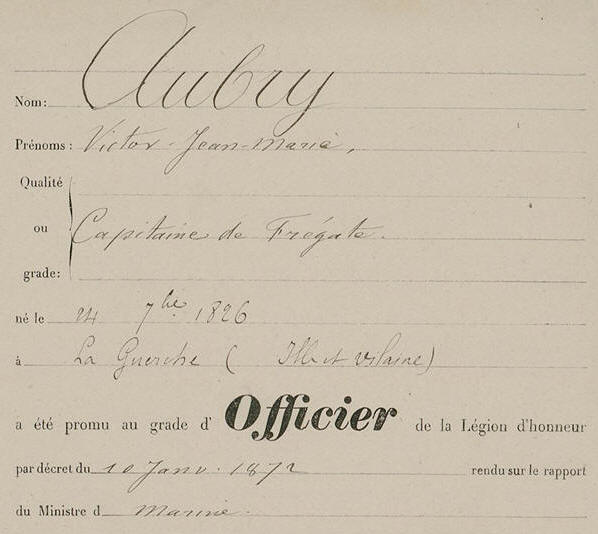 Nom: Aubry
Prénoms: Victor-Jean-Marie,
Qualité
ou Capitaine de Frégate.
grade:
né le 24 7bre 1826
à La Guerche (Ille et vilaine)
a été promu au grade d' Officier de la Légion d'honneur
par décret du 10 Janv. 1872 rendu sur le rapport
du Ministre d Marine.